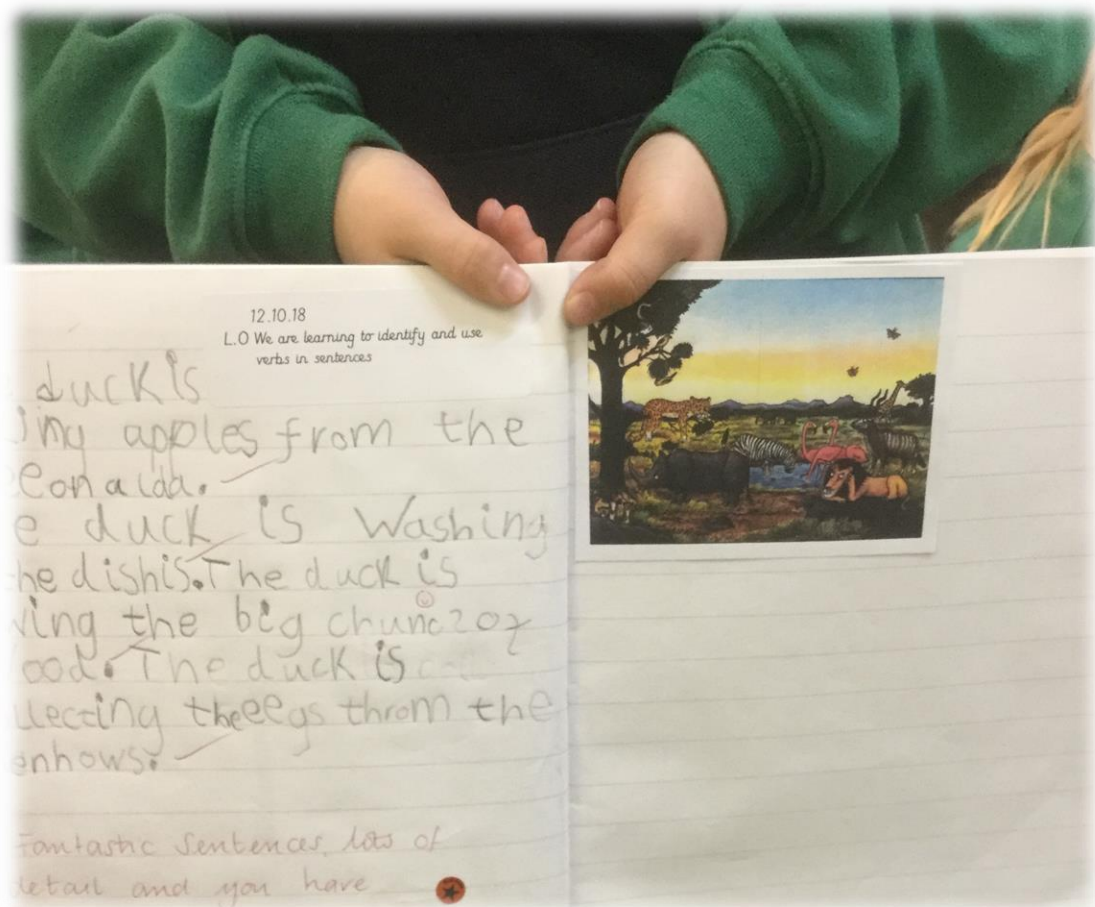 12.10.18
L.O We are learning to identify and use
verbs in sentences
duck is
ing apples from the
duck is washing
dishis. The duck is
ing the big
The duck is
llecting the eegs throm the
enhows.
Fantastic sentences, lots of
detail and you have